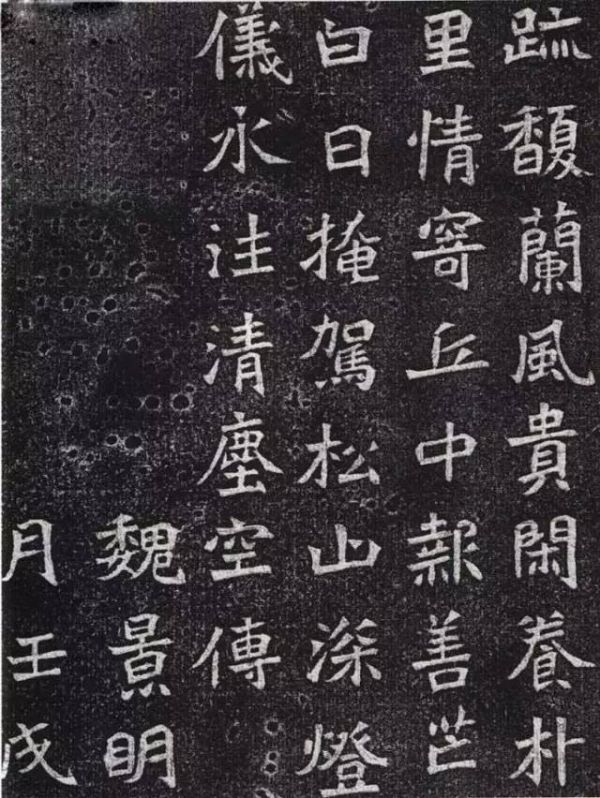 䟽馥蘭風貴閑養朴
里情寄丘中報善芒
白日掩駕松山深燈
儀永注清塵空傳
魏景明
月壬戌